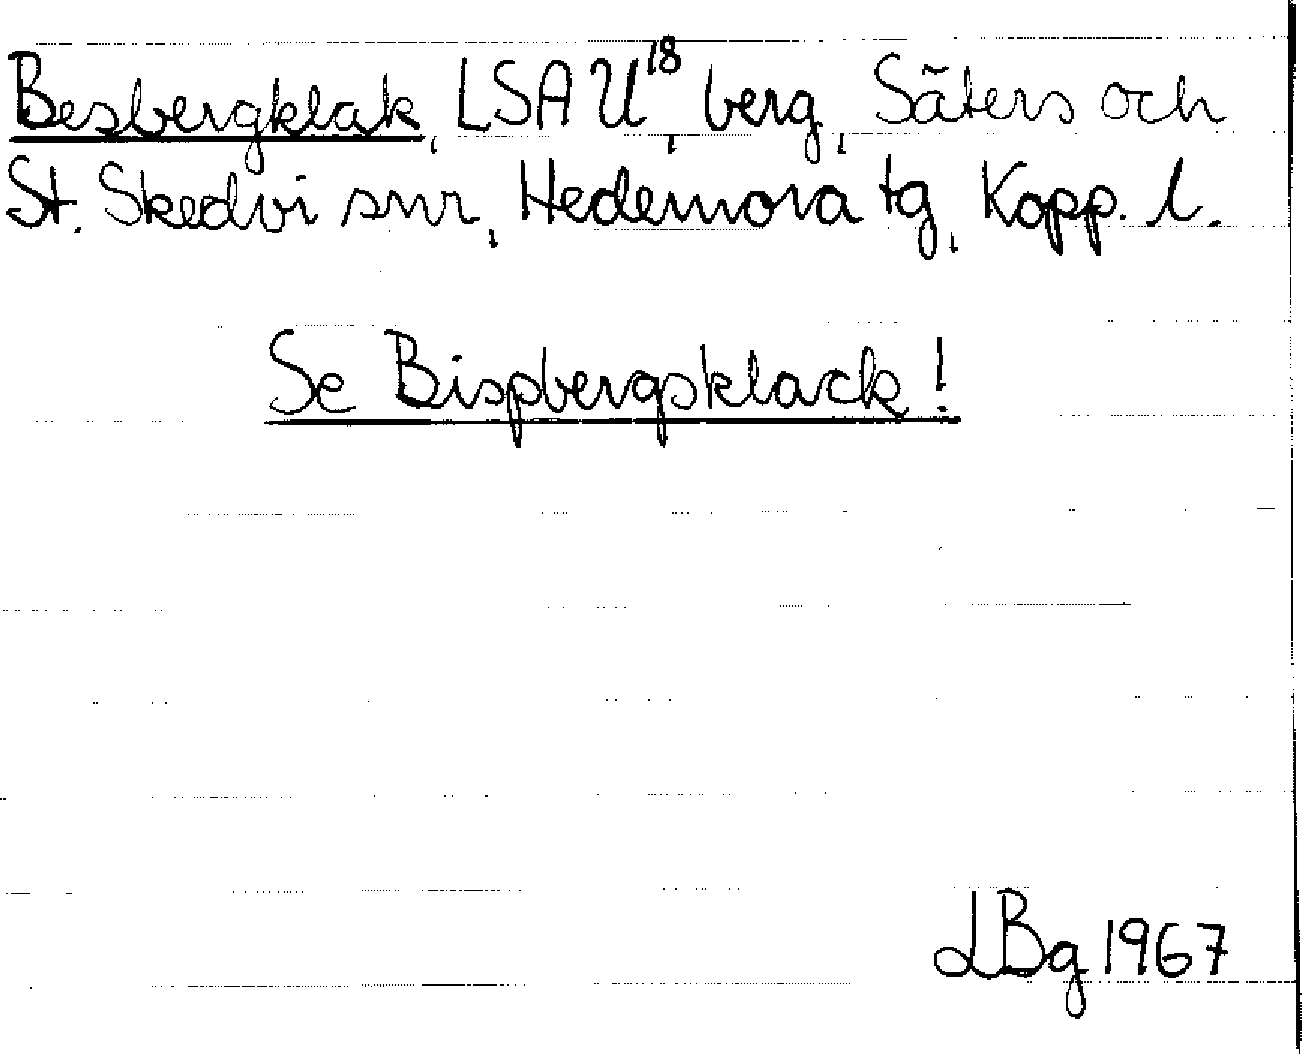 Besbergklak, LSA U¹⁸, berg, Säters och
St. Skedvi snr, Hedemora tg, Kopp. l.
Se Bispbergsklack!
LBg 1967